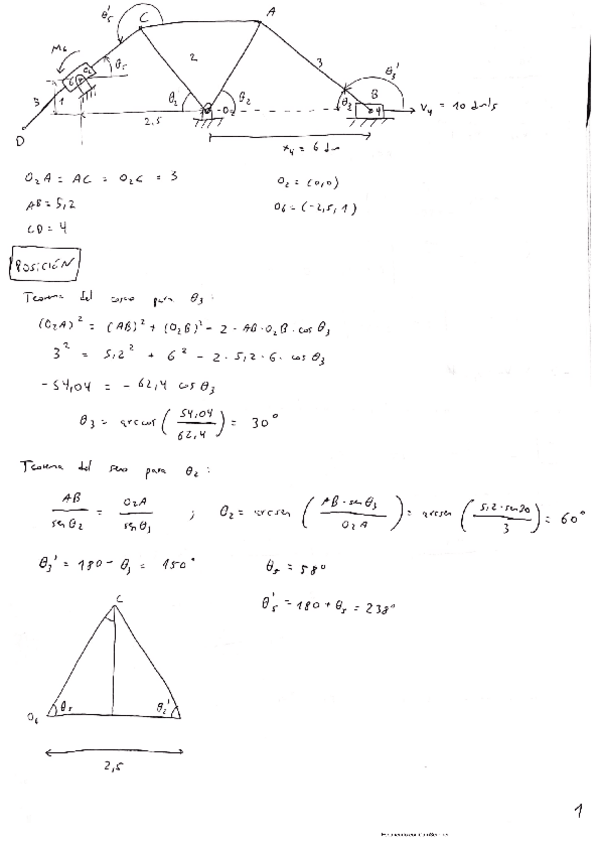 θ₅'
C
A
M₆
6
θ₅
2
3
θ₃'
3
1
θ₂
O₂
θ₂
θ₃
B
4
V₄ = 10 dm/s
D
2,5
x₄ = 6 dm
O₂A = AC = O₂C = 3
O₂ = (0,0)
AB = 5,2
O₆ = (-2,5, 1)
CD = 4
POSICIÓN
Teorema del coseno para θ₃ :
(O₂A)² = (AB)² + (O₂B)² - 2 · AB · O₂B · cos θ₃
3² = 5,2² + 6² - 2 · 5,2 · 6 · cos θ₃
-54,04 = - 62,4 cos θ₃
θ₃ = arccos (54,04 / 62,4) = 30°
Teorema del seno para θ₂ :
AB / sen θ₂ = O₂A / sen θ₃ ; θ₂ = arcsen (AB · sen θ₃ / O₂A) = arcsen (5,2 · sen 30 / 3) = 60°
θ₃' = 180 - θ₃ = 150°
θ₅ = 58°
θ₅' = 180 + θ₅ = 238°
C
O₆
θ₅
θ₂'
2,5
1